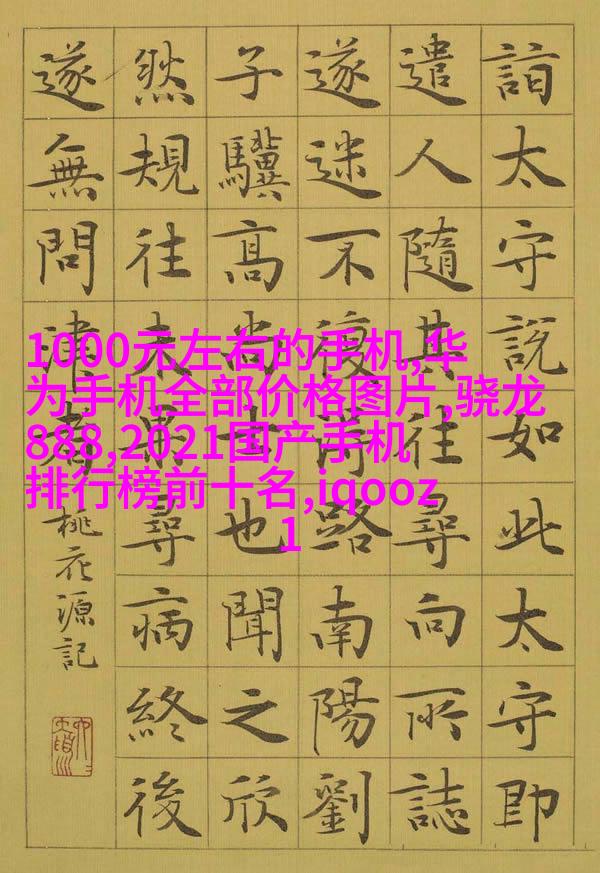 詣太守說如此太守即
遣人隨其往尋向所誌
遂迷不復得路南陽劉
子驥高尚士也聞之欣
然規往未果尋病終後
遂無問津者
桃花源記
1000元左右的手机,华
为手机全部价格图片,骁龙
888,2021国产手机
排行榜前十名,iqooz
1